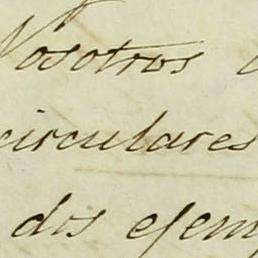 Nosotros
circulares
dos ejem